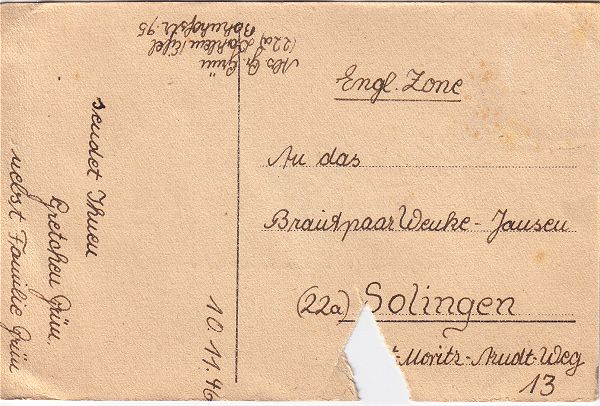 Abs. G. Grün
(22a) Dahlem/Eifel
Bahnhofstr. 95
sendet Ihnen
Gretchen Grün.
nebst Familie Grün
10.11.46
Engl. Zone
An das
Brautpaar Wenke-Jansen
(22a) Solingen
t-Moritz-Arndt-Weg
13